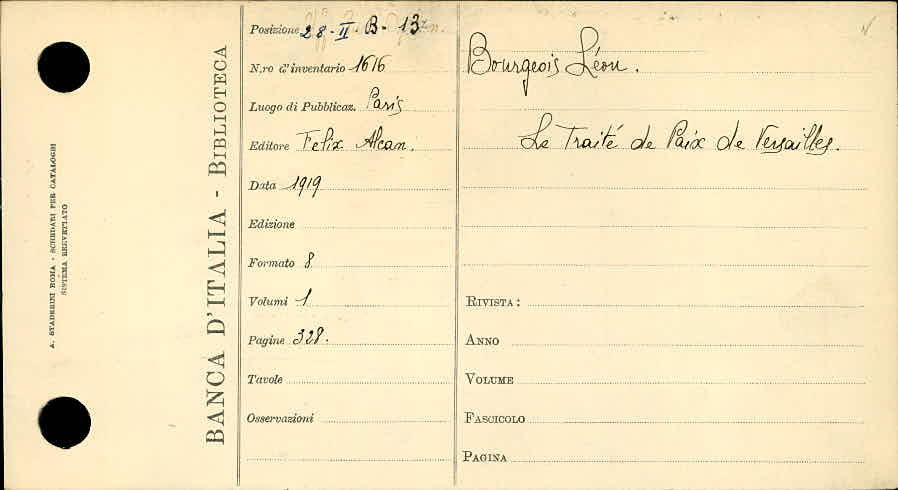 A. STADERINI ROMA - SCHEDARI PER CATALOGHI
SISTEMA BREVETTATO
BANCA D'ITALIA - BIBLIOTECA
Posizione 28-II-B-13
N.ro d'inventario 1616
Luogo di Pubblicaz. Paris
Editore Felix Alcan.
Data 1919
Edizione
Formato 8
Volumi 1
Pagine 328.
Tavole
Osservazioni
Bourgeois Léon.
Le Traité de Paix de Versailles.
RIVISTA:
ANNO
VOLUME
FASCICOLO
PAGINA